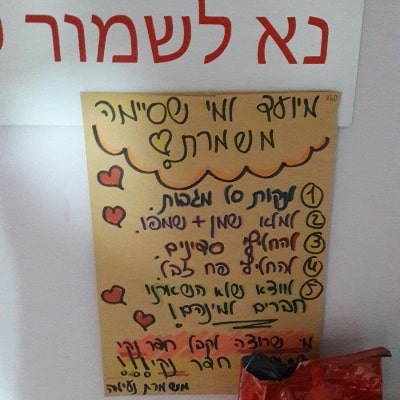 נא לשמור
מיועד למי שסיימה
משמרת
① לנקות סל מגבות.
② למלא שמן + שמפו.
③ להחליף סדינים.
④ להחליף פח זבל.
⑤ לוודא שלא השארנו
חפצים למיניהם!
מי שרוצה לקבל חדר נקי
חדר נקי!!!
משמרת נעימה